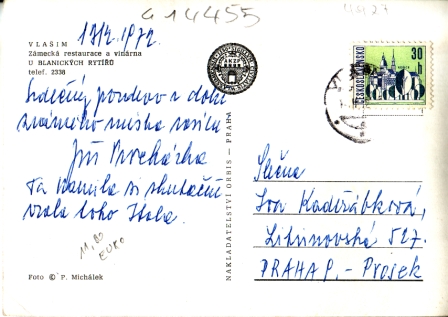 414455
VLAŠIM
Zámecká restaurace a vinárna
U BLANICKÝCH RYTÍŘŮ
telef. 2338
Srdečný pozdrav z dobře
známého místa zasílá
Jiří Procházka
Ta Kamila si skutečně
vzala toho Itala.
11,80
EURO
Foto © P. Michálek
NAKLADATELSTVÍ ORBIS - PRAHA
ČESKOSLOVENSKO
30
Slečna
Iva Kadeřábková,
Litvínovská 527.
PRAHA 9. - Prosek